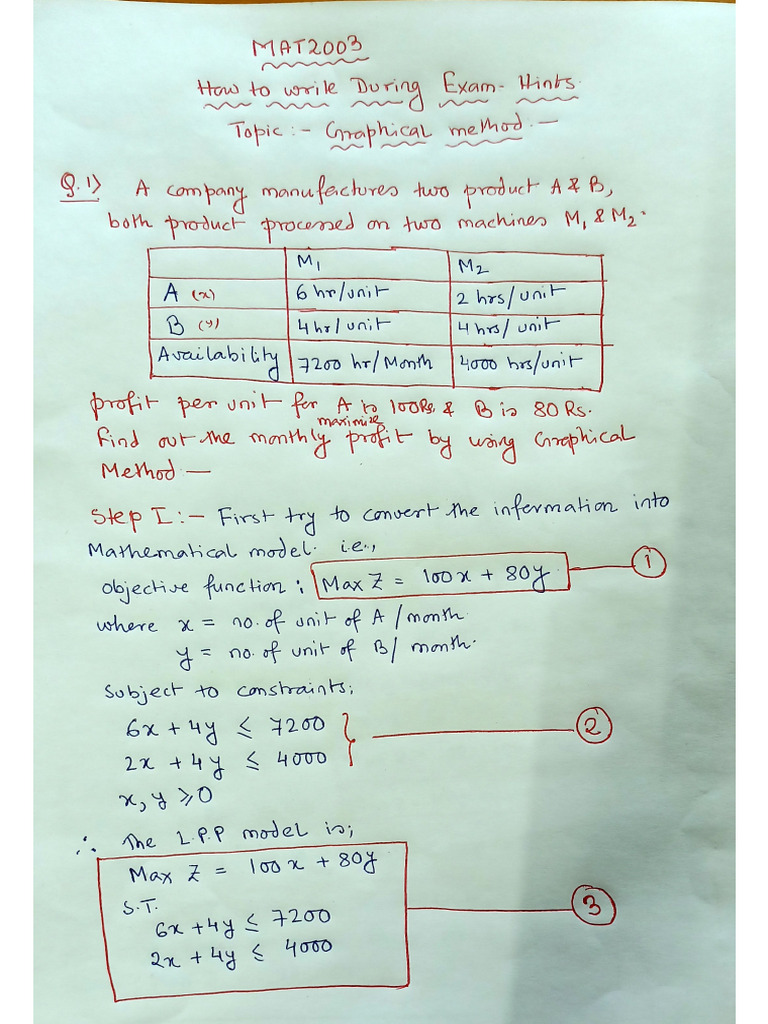 MAT2003
How to write During Exam- Hints.
Topic:- Graphical method.-
Q.1) A company manufactures two product A & B,
both product processed on two machines M1 & M2.
M1 M2
A (x) 6 hr/unit 2 hrs/unit
B (y) 4 hr/unit 4 hrs/unit
Availability 7200 hr/Month 4000 hrs/unit
profit per unit for A is 100Rs. & B is 80 Rs.
maximize
Find out the monthly profit by using Graphical
Method -
Step I:- First try to convert the information into
Mathematical model. i.e.,
objective function: Max Z = 100x + 80y 1
where x = no. of unit of A /month.
y = no. of unit of B/ month.
Subject to constraints;
6x + 4y ≤ 7200
2x + 4y ≤ 4000 2
x, y ≥ 0
∴ The L.P.P model is;
Max Z = 100x + 80y
S.T. 3
6x + 4y ≤ 7200
2x + 4y ≤ 4000